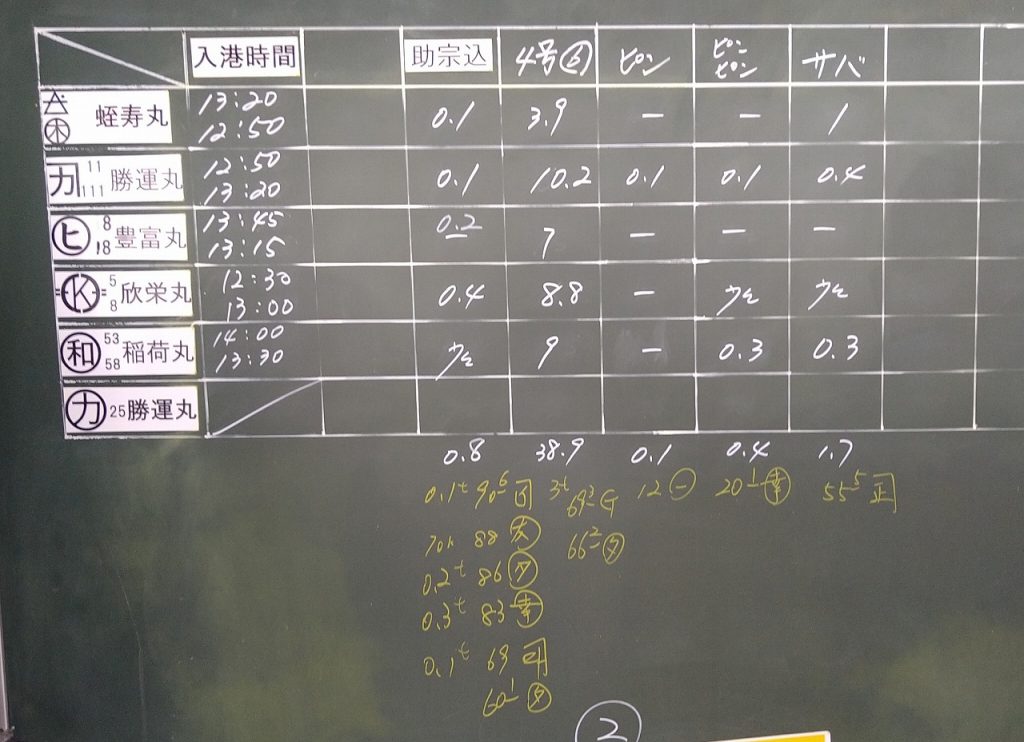 入港時間 助宗込 4号 ピン ピンピン サバ
蛭寿丸 13:20 12:50 0.1 3.9 ー ー 1
カ 11 111 勝運丸 12:50 13:20 0.1 10.2 0.1 0.1 0.4
ヒ 8 18 豊富丸 13:45 13:15 0.2 7 ー ー ー
K 5 8 欣栄丸 12:30 13:00 0.4 8.8 ー 少々 少々
和 53 58 稲荷丸 14:00 13:30 少々 9 ー 0.3 0.3
カ 25 勝運丸
0.8 38.9 0.1 0.4 1.7
0.1t 90 6 3t 69 12 一 20 1 幸 55 5 正
88 友 66 2 タ
0.2t 86 タ
0.3t 83 幸
0.1t 69
60 1 タ
2